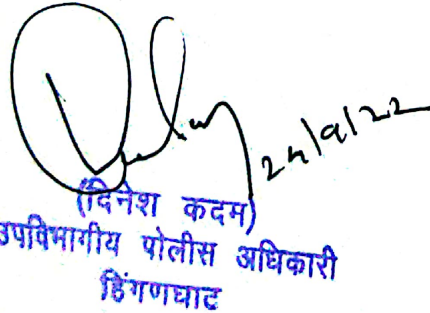 24/9/22
(दिनेश कदम)
उपविभागीय पोलीस अधिकारी
हिंगणघाट